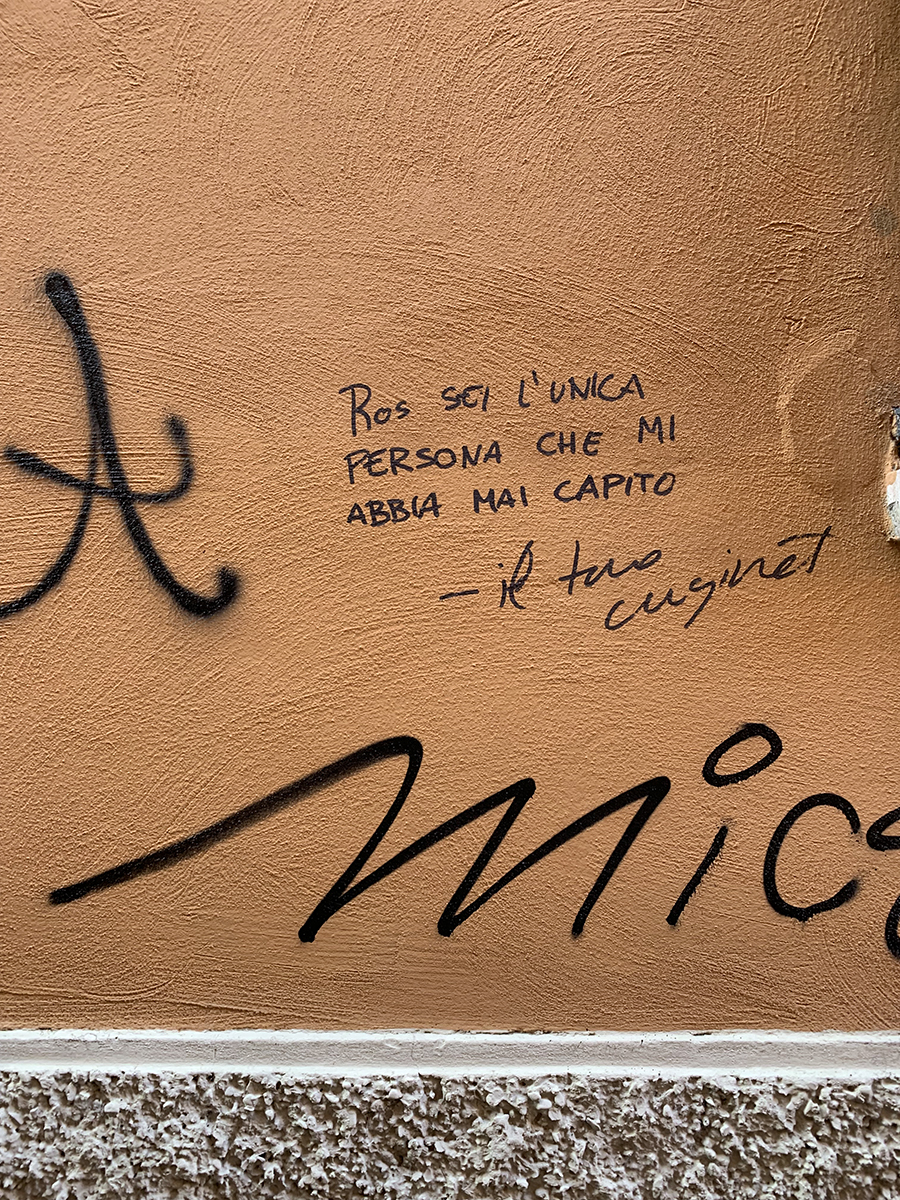 Ros SEI L'UNICA
PERSONA CHE MI
ABBIA MAI CAPITO
- il tuo
cuginèt
mic